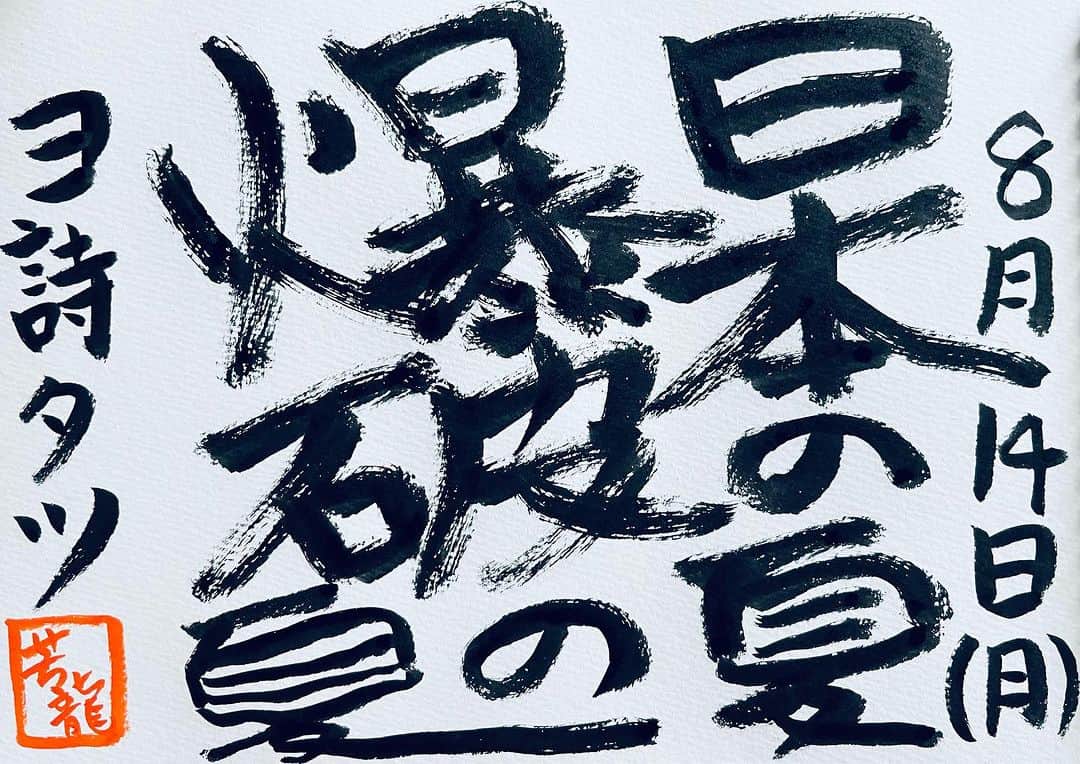 8月14日(月)
日本の夏
爆破の夏
ヨ詩タツ
芳龍